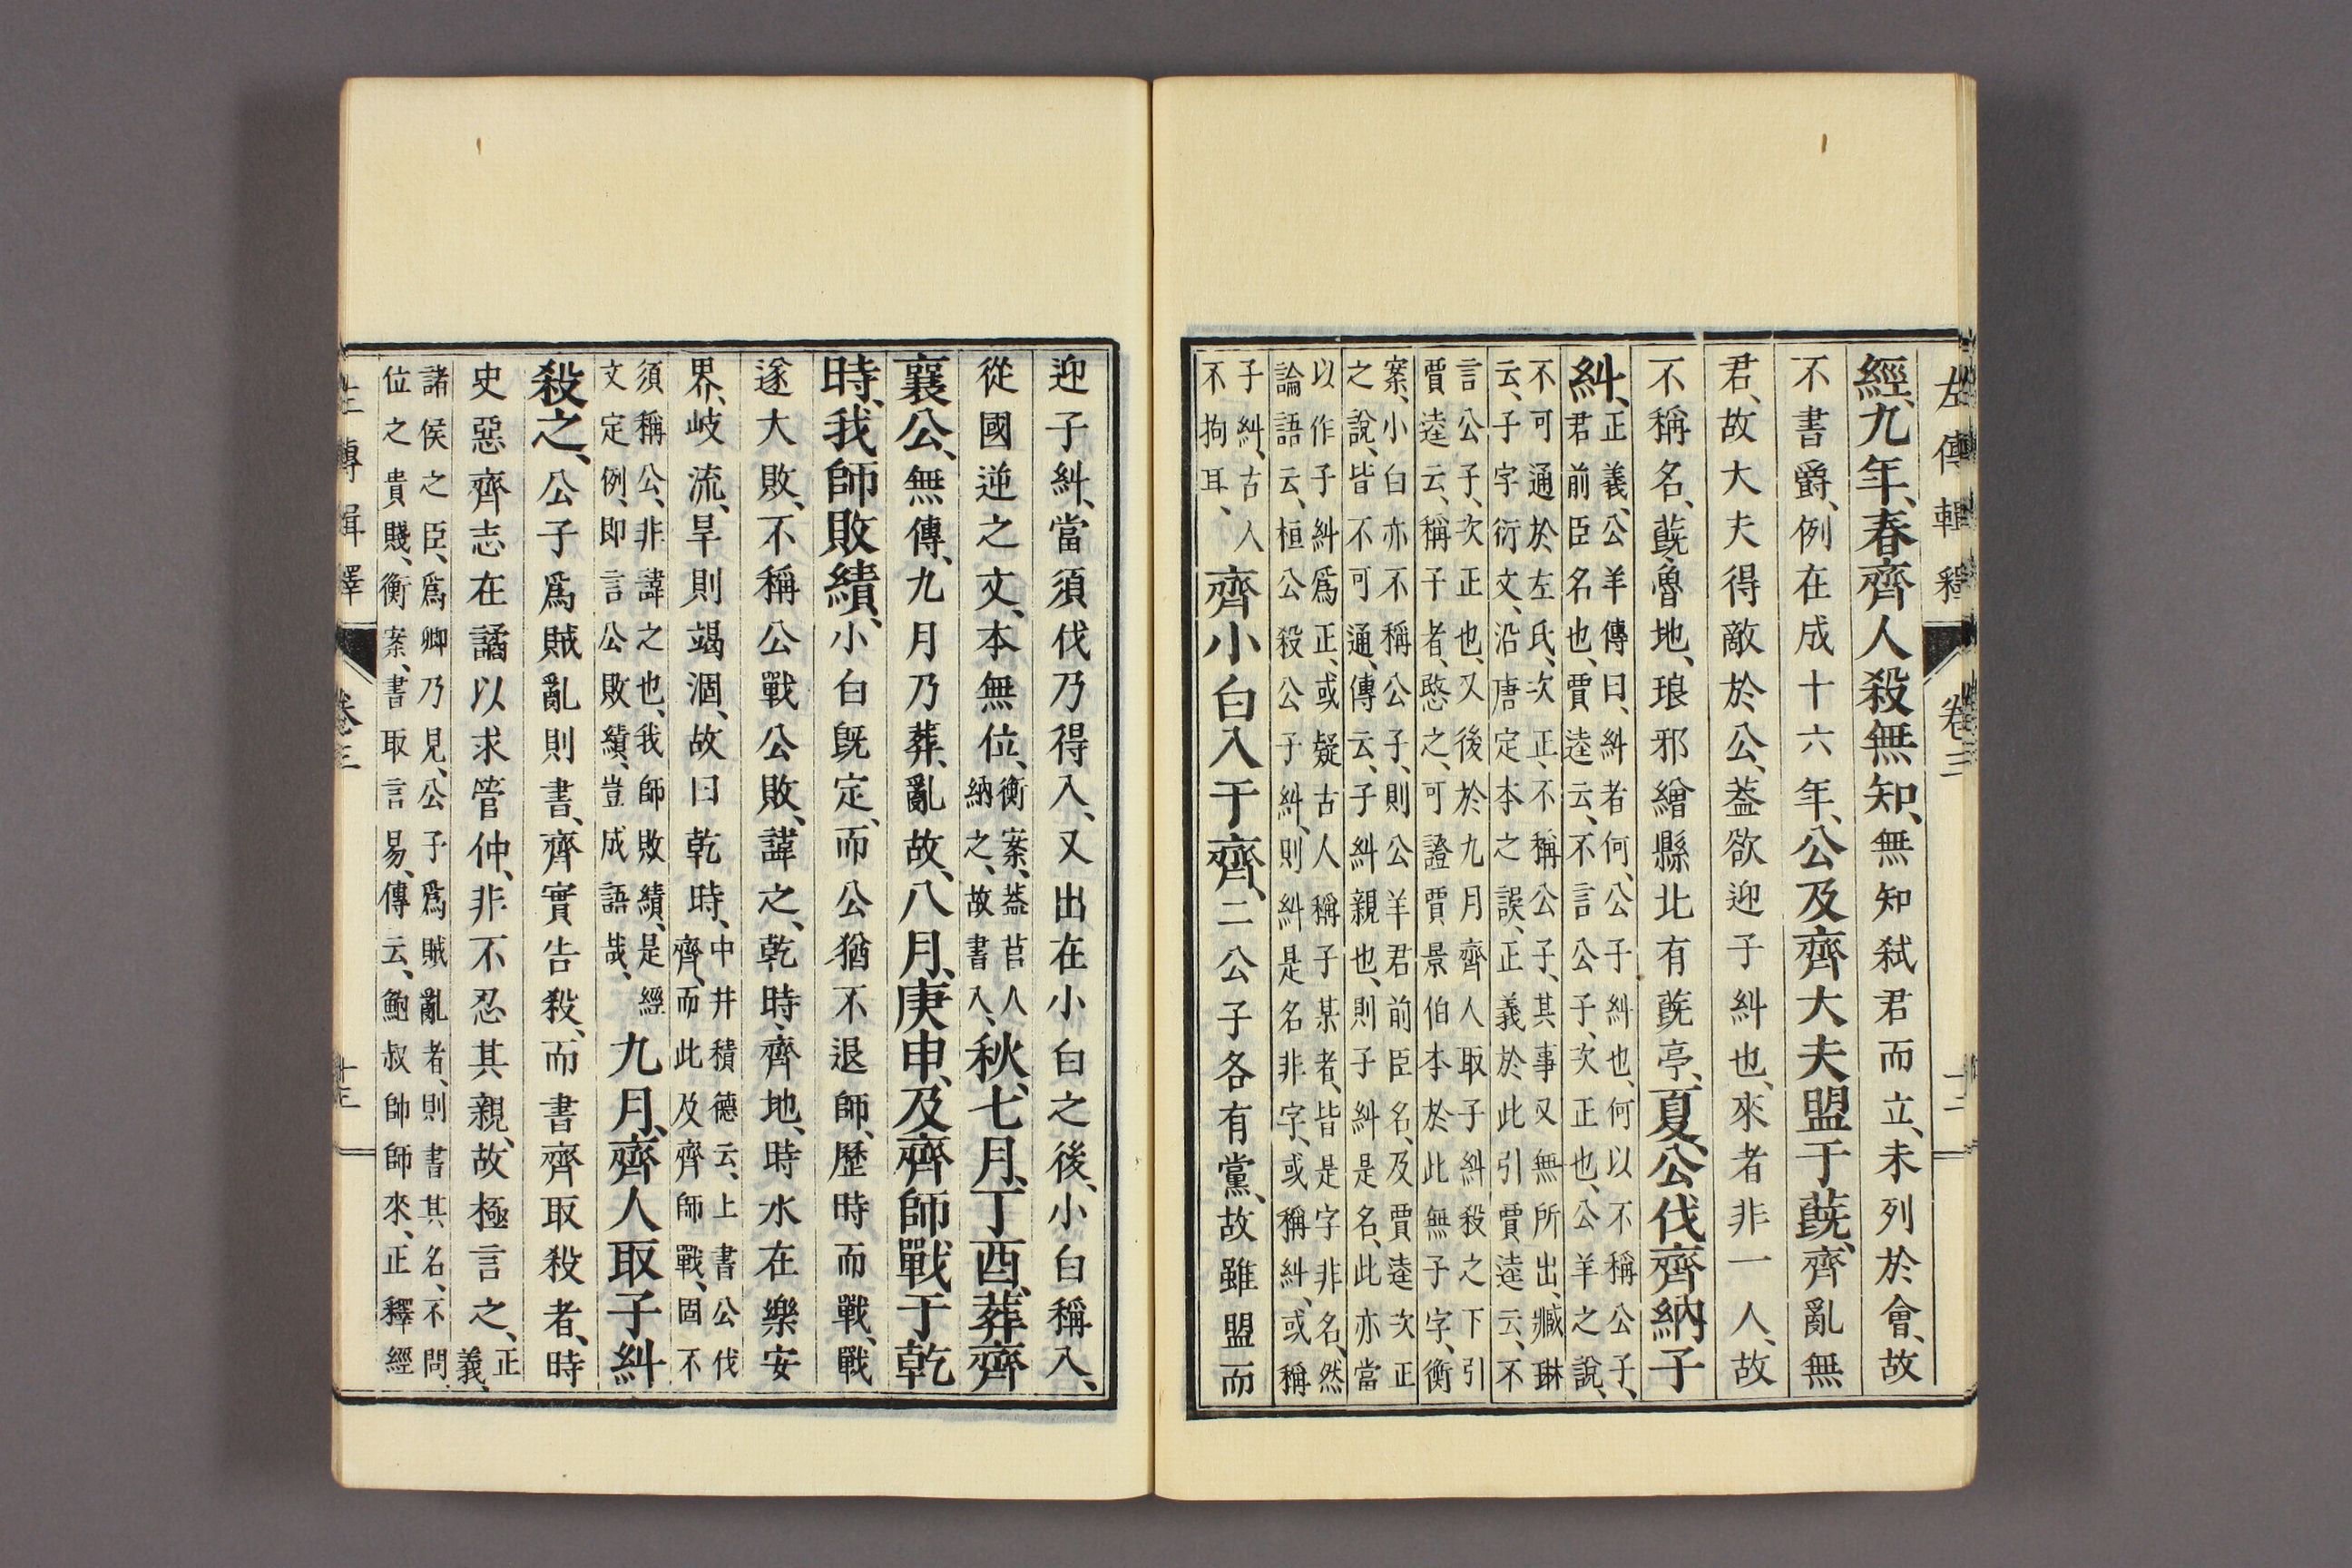 左傳輯釋 卷三
經、九年、春、齊人殺無知、無知弒君而立、未列於會、故
不書爵、例在成十六年、公及齊大夫盟于蔇、齊亂無
君、故大夫得敵於公、蓋欲迎子糾也、來者非一人、故
不稱名、蔇、魯地、琅邪繒縣北有蔇亭、夏、公伐齊納子
糾、正義、公羊傳曰、糾者何、公子糾也、何以不稱公子、
君前臣名也、賈逵云、不言公子、次正也、公羊之說、
不可通於左氏、次正、不稱公子、其事又無所出、臧琳
云、子字衍文、沿唐定本之誤、正義於此引賈逵云、不
言公子、次正也、又後於九月齊人取子糾殺之下引
賈逵云、稱子者、愍之、可證賈景伯本於此無子字、衡
案、小白亦不稱公子、則公羊君前臣名、及賈逵次正
之說、皆不可通、傳云、子糾親也、則子糾是名、此亦當
以作子糾爲正、或疑古人稱子某者、皆是字非名、然
論語云、桓公殺公子糾、則糾是名非字、或稱糾、或稱
子糾、古人
不拘耳、齊小白入于齊、二公子各有黨、故雖盟而
迎子糾、當須伐乃得入、又出在小白之後、小白稱入、
從國逆之文、本無位、衡案、蓋莒人
納之、故書入、秋、七月、丁酉、葬齊
襄公、無傳、九月乃葬、亂故、八月、庚申、及齊師戰于乾
時、我師敗績、小白既定、而公猶不退師、歷時而戰、戰
遂大敗、不稱公戰公敗、諱之、乾時、齊地、時水在樂安
界、岐流、旱則竭涸、故曰乾時、中井積德云、上書公伐
齊、而此及齊師戰、固不
須稱公、非諱之也、我師敗績、是經
文定例、即言公敗績、豈成語哉、九月、齊人取子糾
殺之、公子爲賊亂則書、齊實告殺、而書齊取殺者、時
史惡齊志在譎以求管仲、非不忍其親、故極言之、正
義、
諸侯之臣、爲卿乃見、公子爲賊亂者、則書其名、不問
位之貴賤、衡案、書取言易、傳云、鮑叔帥師來、正釋經
左傳輯釋 卷三